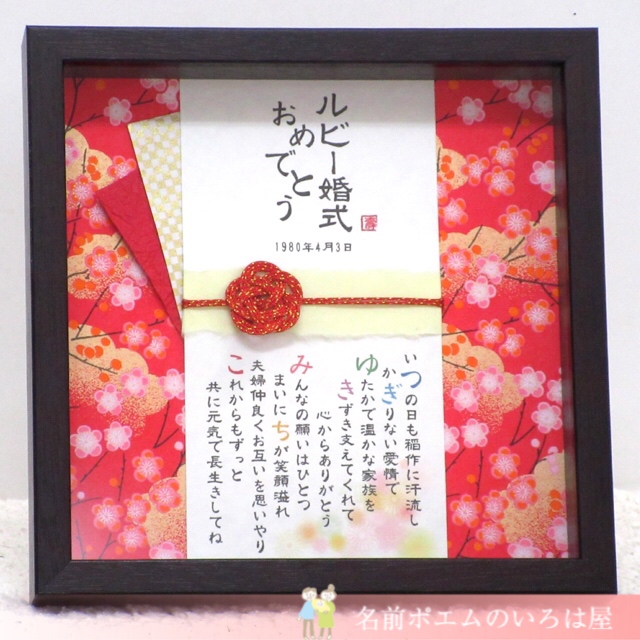 ルビー婚式
おめでとう
寿
1980年4月3日
いつの日も稲作に汗流し
かぎりない愛情で
ゆたかで温かな家族を
きずき支えてくれて
心からありがとう
みんなの願いはひとつ
まいにちが笑顔溢れ
夫婦仲良くお互いを思いやり
これからもずっと
共に元気で長生きしてね
名前ポエムのいろは屋